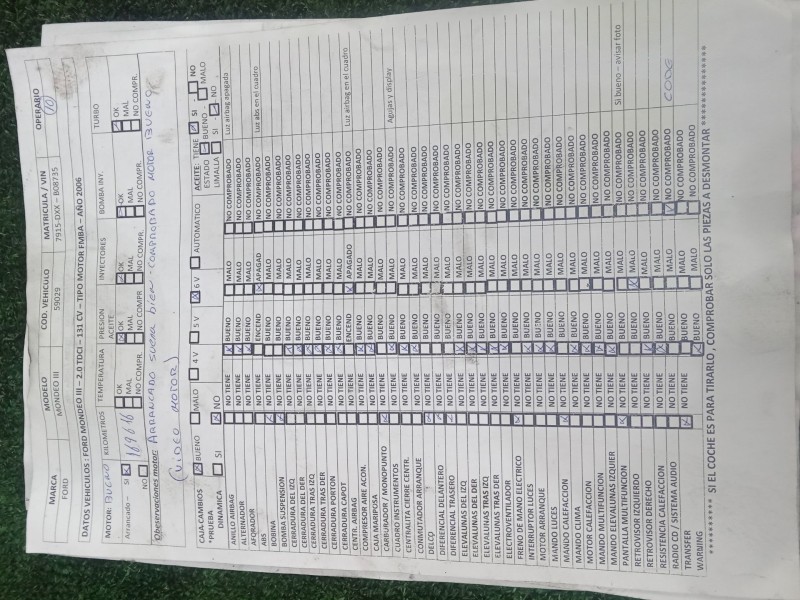 MARCA MODELO COD. VEHICULO MATRICULA / VIN OPERARIO
FORD MONDEO III 59029 7915-DXX – 6D8735 10
DATOS VEHICULOS : FORD MONDEO III – 2.0 TDCI – 131 CV – TIPO MOTOR FMBA – AÑO 2006
MOTOR: BUENO KILOMETROS TEMPERATURA PRESION ACEITE INYECTORES BOMBA INY. TURBO
Arrancado – SI NO
OK OK OK OK OK
MAL MAL MAL MAL MAL
NO COMPR. NO COMPR. NO COMPR. NO COMPR. NO COMPR.
Observaciones motor: ARRANCADO suena bien - COMPROBADO MOTOR BUENO
(VIDEO MOTOR)
CAJA CAMBIOS BUENO MALO 4 V 5 V 6 V AUTOMATICO
ACEITE: TIENE SI - NO
*PRUEBA DINAMICA SI NO
ESTADO BUENO - MALO
LIMALLA SI - NO
ANILLO AIRBAG NO TIENE BUENO MALO NO COMPROBADO Luz airbag apagada
ALTERNADOR NO TIENE BUENO MALO NO COMPROBADO
AFORADOR NO TIENE BUENO MALO NO COMPROBADO
ABS NO TIENE ENCEND APAGAD NO COMPROBADO Luz abs en el cuadro
BOBINA NO TIENE BUENO MALO NO COMPROBADO
BOMBA SUSPENSION NO TIENE BUENO MALO NO COMPROBADO
CERRADURA DEL IZQ NO TIENE BUENO MALO NO COMPROBADO
CERRADURA DEL DER NO TIENE BUENO MALO NO COMPROBADO
CERRADURA TRAS IZQ NO TIENE BUENO MALO NO COMPROBADO
CERRADURA TRAS DER NO TIENE BUENO MALO NO COMPROBADO
CERRADURA PORTON NO TIENE BUENO MALO NO COMPROBADO
CERRADURA CAPOT NO TIENE BUENO MALO NO COMPROBADO
CENTR. AIRBAG NO TIENE ENCEND APAGADO NO COMPROBADO Luz airbag en el cuadro
COMPRESOR AIRE ACON. NO TIENE BUENO MALO NO COMPROBADO
CAJA MARIPOSA NO TIENE BUENO MALO NO COMPROBADO
CARBURADOR / MONOPUNTO NO TIENE BUENO MALO NO COMPROBADO
CUADRO INSTRUMENTOS NO TIENE BUENO MALO NO COMPROBADO Agujas y display
CENTRALITA CIERRE CENTR. NO TIENE BUENO MALO NO COMPROBADO
CONMUTADOR ARRANQUE NO TIENE BUENO MALO NO COMPROBADO
DELCO NO TIENE BUENO MALO NO COMPROBADO
DIFERENCIAL DELANTERO NO TIENE BUENO MALO NO COMPROBADO
DIFERENCIAL TRASERO NO TIENE BUENO MALO NO COMPROBADO
ELEVALUNAS DEL IZQ NO TIENE BUENO MALO NO COMPROBADO
ELEVALUNAS DEL DER NO TIENE BUENO MALO NO COMPROBADO
ELEVALUNAS TRAS IZQ NO TIENE BUENO MALO NO COMPROBADO
ELEVALUNAS TRAS DER NO TIENE BUENO MALO NO COMPROBADO
ELECTROVENTILADOR NO TIENE BUENO MALO NO COMPROBADO
FRENO DE MANO ELECTRICO NO TIENE BUENO MALO NO COMPROBADO
INTERRUPTOR LUCES NO TIENE BUENO MALO NO COMPROBADO
MOTOR ARRANQUE NO TIENE BUENO MALO NO COMPROBADO
MANDO LUCES NO TIENE BUENO MALO NO COMPROBADO
MANDO CALEFACCION NO TIENE BUENO MALO NO COMPROBADO
MANDO CLIMA NO TIENE BUENO MALO NO COMPROBADO
MOTOR CALEFACCION NO TIENE BUENO MALO NO COMPROBADO
MANDO MULTIFUNCION NO TIENE BUENO MALO NO COMPROBADO
MANDO ELEVALUNAS IZQUIER NO TIENE BUENO MALO NO COMPROBADO
PANTALLA MULTIFUNCION NO TIENE BUENO MALO NO COMPROBADO Si bueno – avisar foto
RETROVISOR IZQUIERDO NO TIENE BUENO MALO NO COMPROBADO
RETROVISOR DERECHO NO TIENE BUENO MALO NO COMPROBADO
RESISTENCIA CALEFACCION NO TIENE BUENO MALO NO COMPROBADO
RADIO CD / SISTEMA AUDIO NO TIENE BUENO MALO NO COMPROBADO CODE
TRANSFER NO TIENE BUENO MALO NO COMPROBADO
WARBING BUENO MALO NO COMPROBADO
*********** SI EL COCHE ES PARA TIRARLO , COMPROBAR SOLO LAS PIEZAS A DESMONTAR ***************